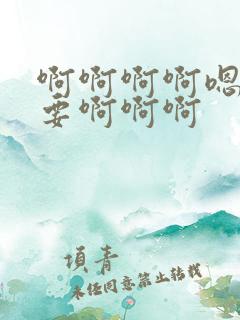 啊啊啊啊嗯
要啊啊啊
顷青
未经同意禁止转载